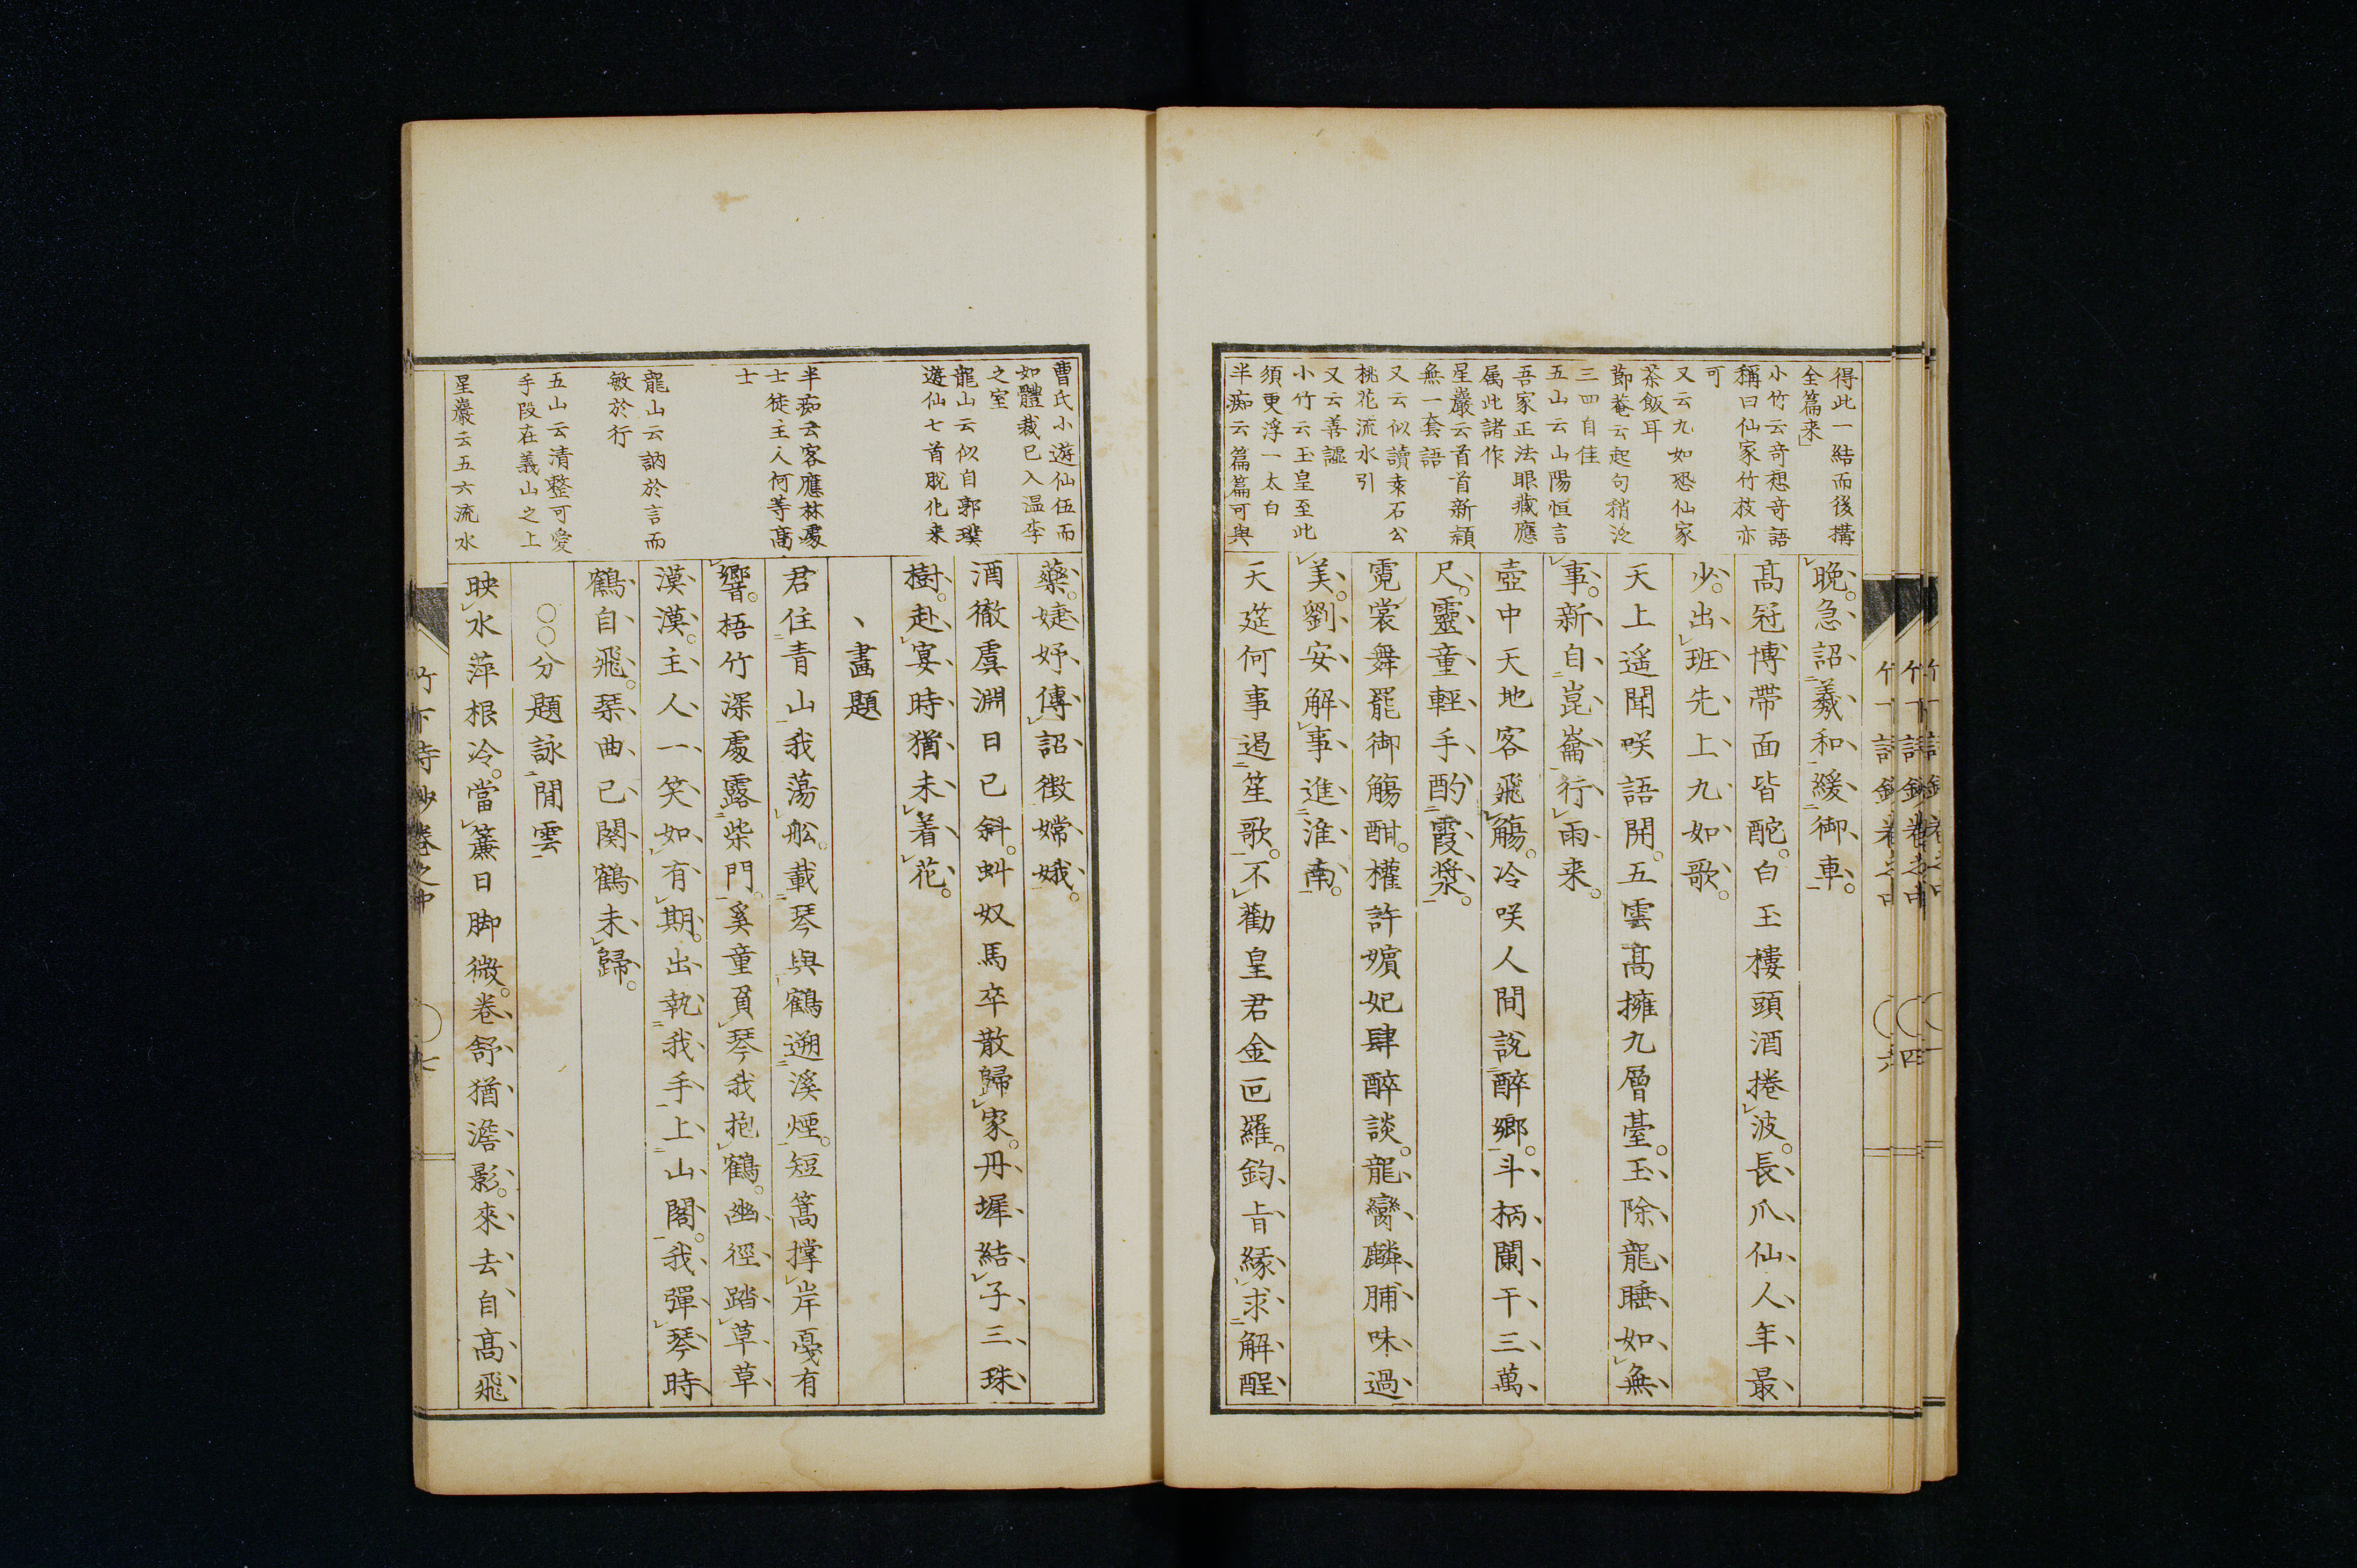 得此一結而後搆
全篇来
小竹云奇想奇語
稱曰仙家竹枝亦
可
又云九如恐仙家
茶飯耳
節菴云起句稍泛
三四自佳
五山云山陽恒言
吾家正法眼藏應
属此諸作
星巖云首首新穎
無一套語
又云似讀袁石公
桃花流水引
又云善謔
小竹云玉皇至此
須更浮一太白
半痴云篇篇可與
晩。急詔羲和緩御車。
高冠博帶面皆酡。白玉樓頭酒捲波。長爪仙人年最
少。出班先上九如歌。
天上遥聞咲語開。五雲高擁九層臺。玉除龍睡如無
事。新自崑崙行雨来。
壺中天地客飛觴。冷咲人間説醉鄉。斗柄闌干三萬
尺。靈童輕手酌霞漿。
霓裳舞罷御觴酣。權許嬪妃肆醉談。龍臠麟脯味過
美。劉安解事進淮南。
天莚何事遏笙歌。不勸皇君金叵羅。鈞旨緣求解酲
曹氏小遊仙伍而
如體裁已入温李
之室
龍山云似自郭璞
遊仙七首脱化来
半痴云客應林處
士徒主人何等高
士
龍山云訥於言而
敏於行
五山云清整可愛
手段在義山之上
星巖云五六流水
藥。婕妤傳詔徵嫦娥。
酒徹虞淵日已斜。蚪奴馬卒散歸家。丹墀結子三珠
樹。赴宴時猶未着花。
畫題
君住青山我蕩舩。載琴與鶴遡溪煙。短篙撑岸戞有
響。梧竹深處露柴門。奚童負琴我抱鶴。幽徑踏草草
漠漠。主人一笑如有期。出執我手上山閣。我彈琴時
鶴自飛。琹曲已闋鶴未歸。
○○分題詠閒雲
映水萍根冷。當簾日脚微。卷舒猶澹影。來去自高飛
竹下詩鈔卷之中
七